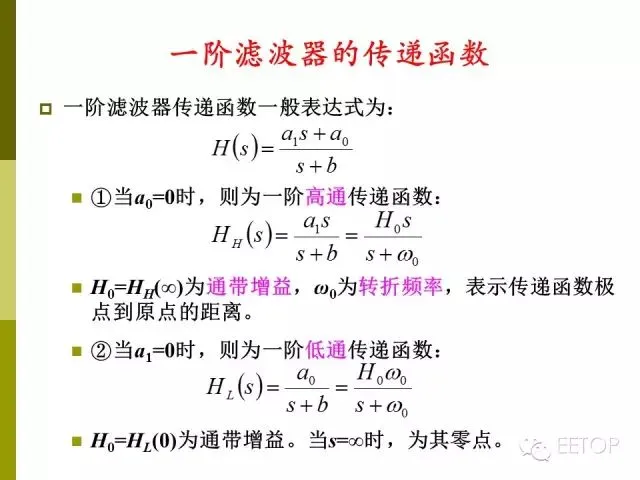 一阶滤波器的传递函数
一阶滤波器传递函数一般表达式为：
H(s) = (a₁s + a₀) / (s + b)
①当a₀=0时，则为一阶高通传递函数：
H_H(s) = a₁s / (s + b) = H₀s / (s + ω₀)
H₀=H_H(∞)为通带增益，ω₀为转折频率，表示传递函数极
点到原点的距离。
②当a₁=0时，则为一阶低通传递函数：
H_L(s) = a₀ / (s + b) = H₀ω₀ / (s + ω₀)
H₀=H_L(0)为通带增益。当s=∞时，为其零点。
EETOP